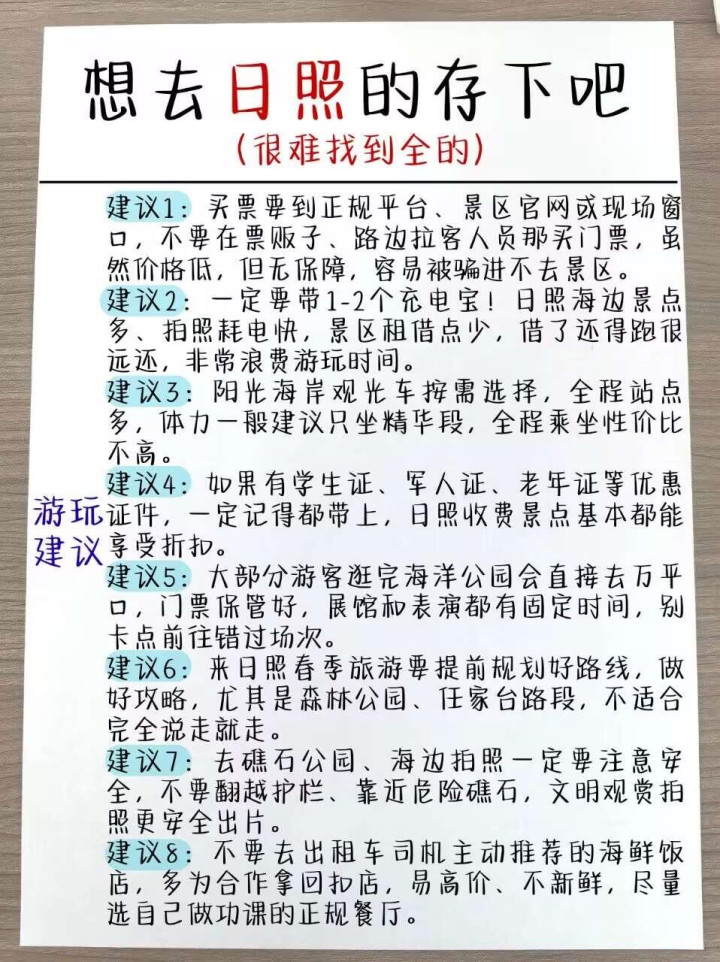 想去日照的存下吧
(很难找到全的)
建议1：买票要到正规平台、景区官网或现场窗
口，不要在票贩子、路边拉客人员那买门票，虽
然价格低，但无保障，容易被骗进不去景区。
建议2：一定要带1-2个充电宝！日照海边景点
多、拍照耗电快，景区租借点少，借了还得跑很
远还，非常浪费游玩时间。
建议3：阳光海岸观光车按需选择，全程站点
多，体力一般建议只坐精华段，全程乘坐性价比
不高。
建议4：如果有学生证、军人证、老年证等优惠
证件，一定记得都带上，日照收费景点基本都能
享受折扣。
游玩
建议
建议5：大部分游客逛完海洋公园会直接去万平
口，门票保管好，展馆和表演都有固定时间，别
卡点前往错过场次。
建议6：来日照春季旅游要提前规划好路线，做
好攻略，尤其是森林公园、任家台路段，不适合
完全说走就走。
建议7：去礁石公园、海边拍照一定要注意安
全，不要翻越护栏、靠近危险礁石，文明观赏拍
照更安全出片。
建议8：不要去出租车司机主动推荐的海鲜饭
店，多为合作拿回扣店，易高价、不新鲜，尽量
选自己做功课的正规餐厅。